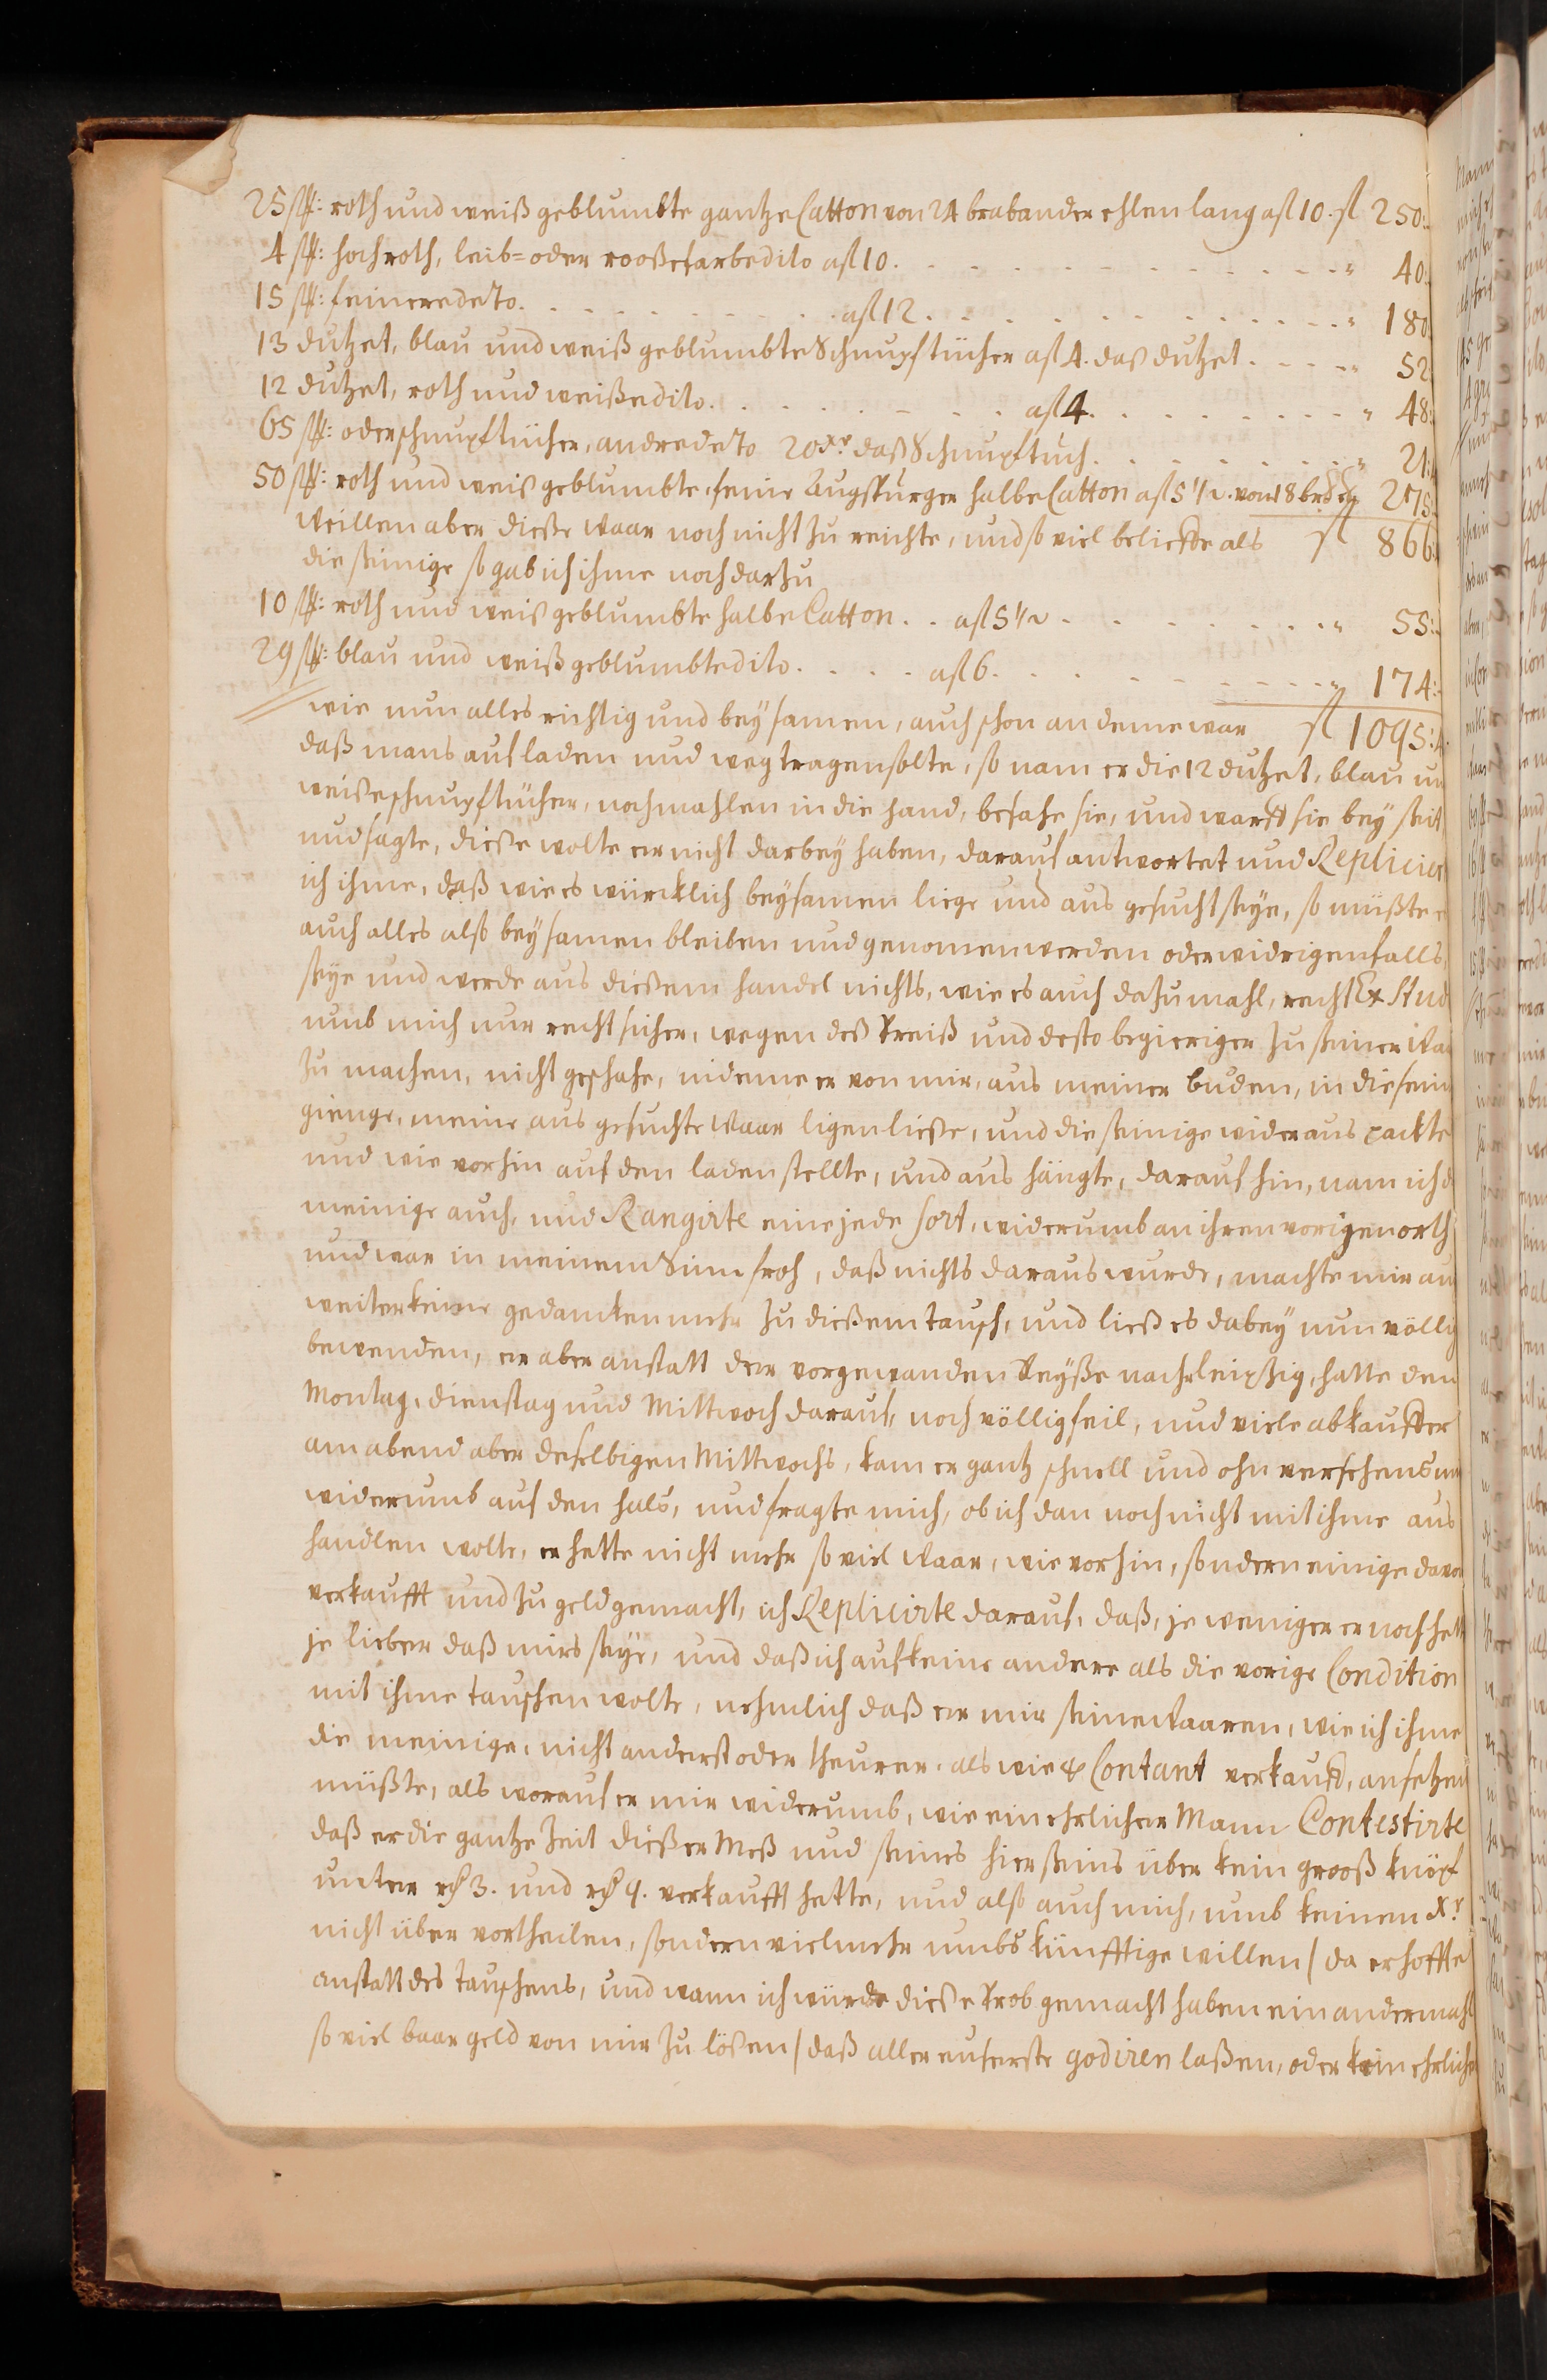 25 stk: roth und weiß geblumbte gantze Catton von 24 brabander ehlen lang a fl 10. fl 250:
4 stk: hochroth, leib= oder rooßefarbe dito a fl 10. " 40:
15 stk: feinere deto. a fl 12. " 180:
13 dutzet, blau und weiß geblumbte Schnupftücher a fl 4. daß dutzet. " 52:
12 dutzet, roth und weiße dito. a fl 4. " 48:
65 stk: oder schnupftücher, andre deto 20 xr. daß Schnupftuch. " 21:
50 stk: roth und weiß geblumbte, feine Augspurger halbe Catton a fl 5 1/2. von 18 br: 275:
Weillen aber dieße Waar noch nicht zu reichte, und so viel belieffe als fl 866:
die seinige so gab ich ihme noch darzu
10 stk: roth und weiß geblumbte halbe Catton. . a fl 5 1/2 . " 55:
29 stk: blau und weiß geblumbte dito. a fl 6. " 174:
wie nun alles richtig und beysamen, auch schon an deme war fl 1095:
daß mans aufladen und wegtragen solte, so nam er die 12 dutzet, blau un
weiße schnupftücher, nochmahlen in die hand, besahe sie, und warff sie bey seit
und sagte, dieße wolte er nicht darbey haben, darauf antwortet und Replicier
ich ihme, daß wie es würcklich beysamen liege und aus gesucht seye, so müßte e
auch alles also beysamen bleiben und genomen werden oder widrigenfalls,
seye und werde aus dießem handel nichts, wie es auch dazumahl, recht Ex Stud
umb mich nur recht sicher, wegen deß Preiß und desto begieriger zu seiner Waa
zu machen, nicht geschahe, indeme er von mir, aus meiner buden, in die sein
gienge, meine aus gesuchte Waar ligen ließe, und die seinige wider aus packte
und wie vorhin auf den laden stellte, und aus hängte, darauf hin, nam ich d
meinige auch, und Rangirte eine jede sort, widerumb an ihren vorigen orth
und war in meinem Sinn froh, daß nichts daraus wurde, machte mir au
weiter keine gedancken mehr zu dießem tausch, und ließ es dabey nun völlig
bewenden, er aber anstatt der vorgewanden Reyße nach leipzig, hatte den
Montag, dienstag und Mittwoch darauf, noch völlig feil, und viele abkauffer
am abend aber deselbigen Mittwochs, kam er gantz schnell und ohn versehens mi
widerumb auf den hals, und fragte mich, ob ich dan noch nicht mit ihme aus
handlen wolte, er hette nicht mehr so viel Waar, wie vorhin, sondern einige davo
verkaufft und zu geld gemacht, ich Replicirte darauf, daß, je weniger er noch hett
je lieber daß mirs seye, und daß ich auf keine andere als die vorige Condition
mit ihme tauschen wolte, nehmlich daß er mir seine Waaren, wie ich ihme
die meinige, nicht anderst oder theurer, als wie Contant verkaufft, ansetzen
müßte, als worauf er mir widerumb, wie ein ehrlicher Mann Contestirte
daß er die gantze Zeit dießer Meß und seines hierseins über kein grooß knöpf
unter rthl 3. und rthl 4. verkaufft hette, und also auch mich, umb keinen xr.
nicht über vortheilen, sondern vielmehr umbs künfftige willen / da er hoffte
anstatt des tauschens, und wann ich würde dieße Prob gemacht haben ein andermahl
so viel baar geld von mir zu lößen / daß aller euserste godiren laßen, oder kein ehrliche